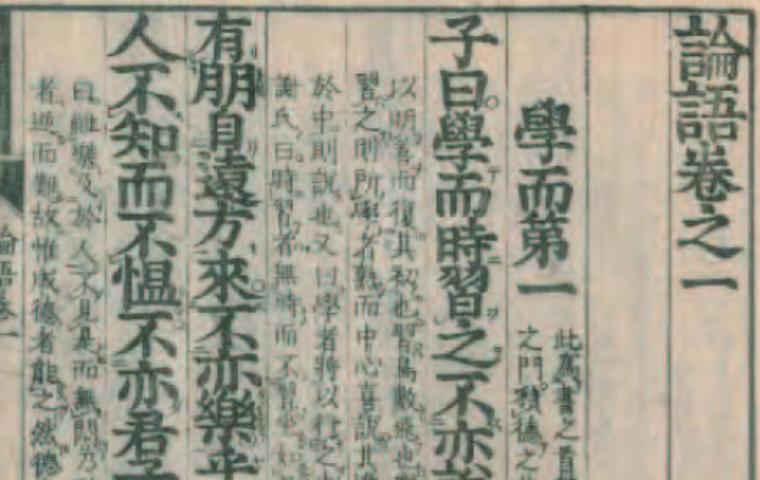 論語卷之一
學而第一
此為書之首
之門積德之
子曰學而時習之不亦
以明善而復其初也習鳥數飛也
習之則所學者熟而中心喜說其
於中則說也又曰學者將以行之
謝氏曰時習者無時而不習
有朋自遠方來不亦樂乎
人不知而不慍不亦君子
曰雖樂及於人不見是而無悶乃
者逆而難故惟成德者能之然德
論語卷一